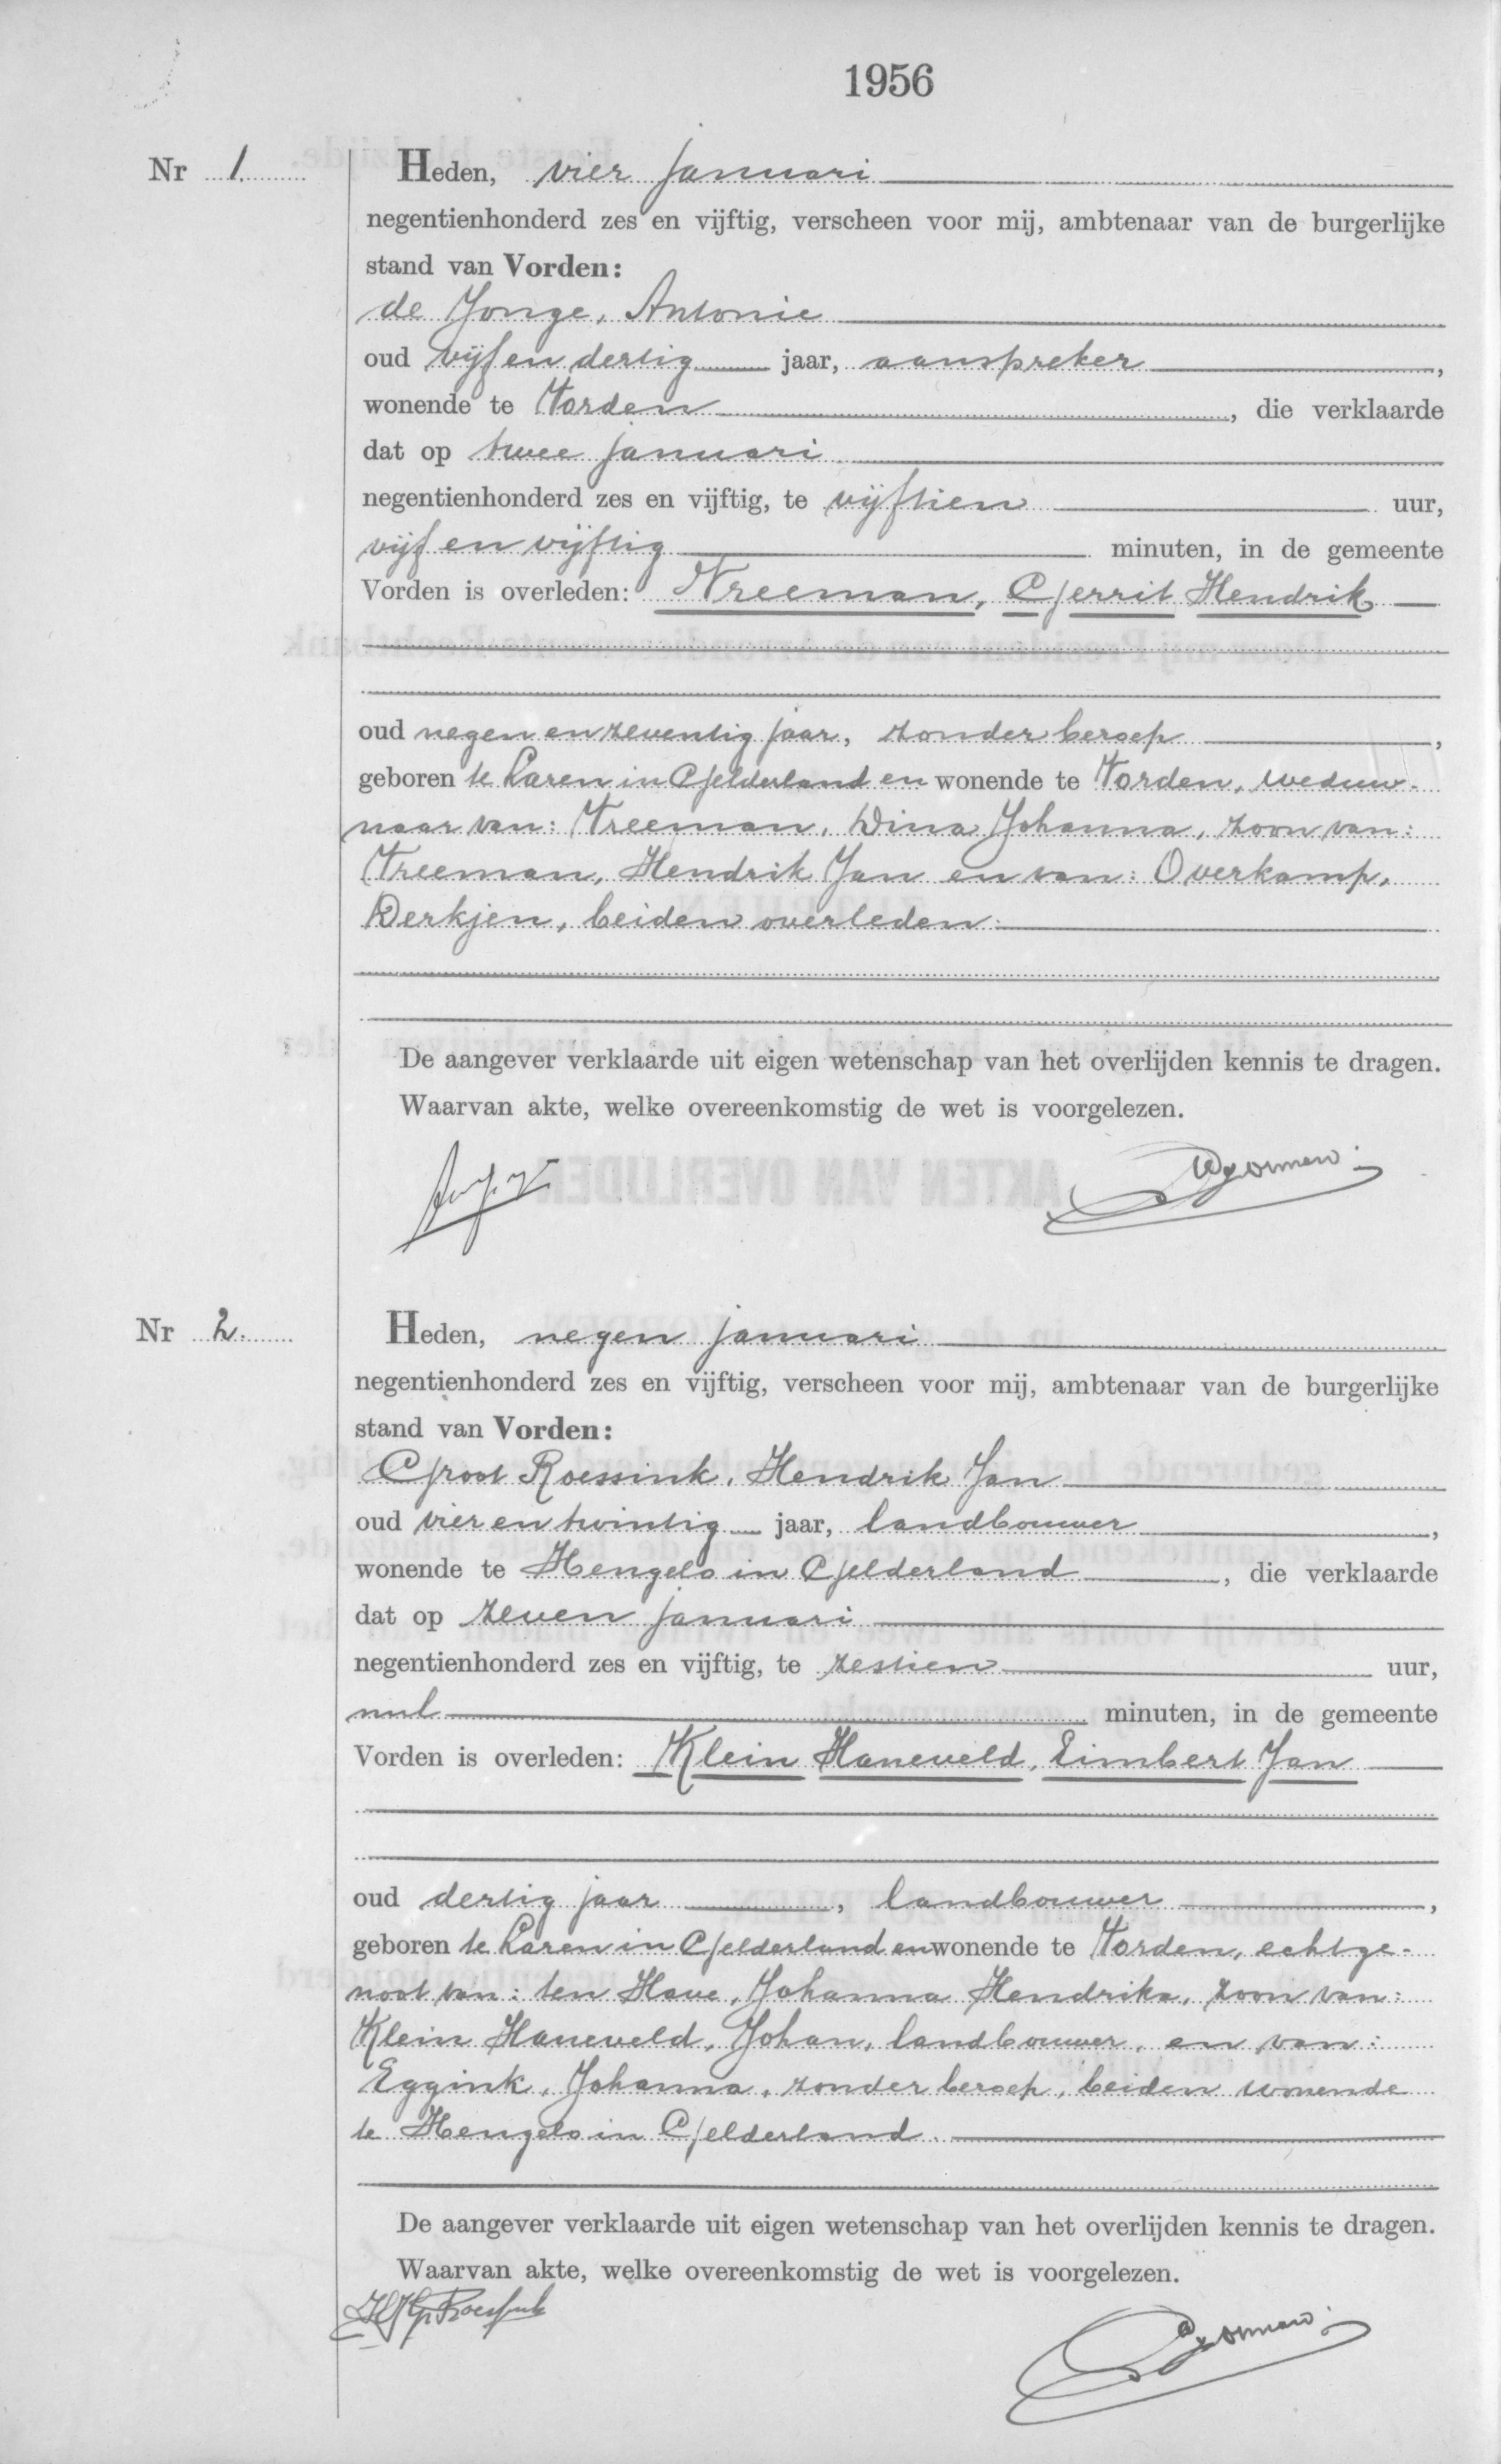 1956
Nr 1.
Heden, vier januari
negentienhonderd zes en vijftig, verscheen voor mij, ambtenaar van de burgerlijke
stand van Vorden:
de Jonge, Antonie
oud vijf en dertig jaar, aanspreker,
wonende te Vorden, die verklaarde
dat op twee januari
negentienhonderd zes en vijftig, te vijftien uur,
vijf en vijftig minuten, in de gemeente
Vorden is overleden: Vreeman, Gerrit Hendrik
oud negen en zeventig jaar, zonder beroep,
geboren te Laren in Gelderland en wonende te Vorden, weduw-
naar van: Vreeman, Dina Johanna, zoon van:
Vreeman, Hendrik Jan en van: Overkamp,
Derkjen, beiden overleden.
De aangever verklaarde uit eigen wetenschap van het overlijden kennis te dragen.
Waarvan akte, welke overeenkomstig de wet is voorgelezen.
Nr 2.
Heden, negen januari
negentienhonderd zes en vijftig, verscheen voor mij, ambtenaar van de burgerlijke
stand van Vorden:
Groot Roessink, Hendrik Jan
oud vier en twintig jaar, landbouwer,
wonende te Hengelo in Gelderland, die verklaarde
dat op zeven januari
negentienhonderd zes en vijftig, te zestien uur,
nul minuten, in de gemeente
Vorden is overleden: Klein Haneveld, Eimbert Jan
oud dertig jaar, landbouwer,
geboren te Laren in Gelderland en wonende te Vorden, echtge-
noot van: ten Have, Johanna Hendrika, zoon van:
Klein Haneveld, Johan, landbouwer, en van:
Eggink, Johanna, zonder beroep, beiden wonende
te Hengelo in Gelderland.
De aangever verklaarde uit eigen wetenschap van het overlijden kennis te dragen.
Waarvan akte, welke overeenkomstig de wet is voorgelezen.
HJ Gr Roessink